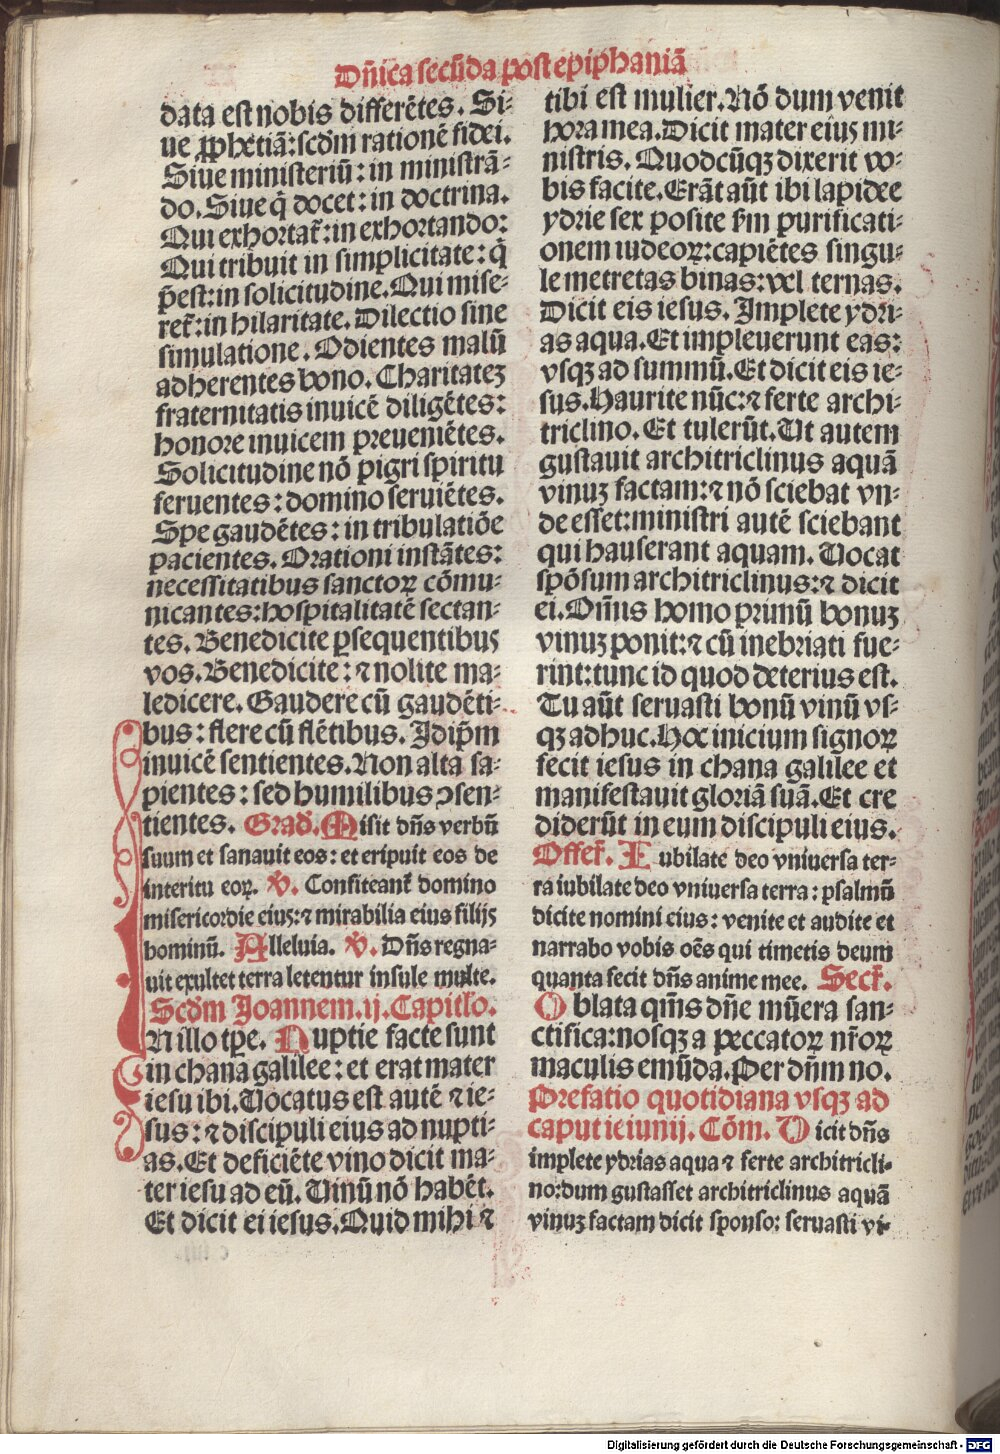 Dn̄ica secūda post epiphaniā
data est nobis differētes. Si⸗
ue ꝓphetiā: scḋm rationē fidei.
Siue ministeriū: in ministrā⸗
do. Siue q̇ docet: in doctrina.
Qui exhortat᷑: in exhortando:
Qui tribuit in simplicitate: q̇
p̄est: in solicitudine. Qui mise⸗
ret᷑: in hilaritate. Dilectio sine
simulatione. Odientes malū
adherentes bono. Charitateꝫ
fraternitatis inuicē diligētes:
honore inuicem preueniētes.
Solicitudine nō pigri spiritu
feruentes: domino seruiētes.
Spe gaudētes: in tribulatiōe
pacientes. Orationi instātes:
necessitatibus sanctoꝝ cōmu⸗
nicantes: hospitalitatē sectan⸗
tes. Benedicite ꝑsequentibus
vos. Benedicite: ⁊ nolite ma⸗
ledicere. Gaudere cū gaudēti⸗
bus: flere cū flētibus. Idip̄m
inuicē sentientes. Non alta sa⸗
pientes: sed humilibus ꝯsen⸗
tientes. Grad̄. Misit dn̄s verbū
suum et sanauit eos: et eripuit eos de
interitu eoꝝ. V̊. Confiteant᷑ domino
misericordie eiusꝫ: ⁊ mirabilia eius filijs
hominū. Alleluia. V̊. Dn̄s regna⸗
uit exultet terra letentur insule multe.
Scḋm Joannem. ij. Capitl̓o.
IN illo tp̄e. Nuptie facte sunt
in chana galilee: et erat mater
iesu ibi. Vocatus est autē ⁊ ie⸗
sus: ⁊ discipuli eius ad nupti⸗
as. Et deficiēte vino dicit ma⸗
ter iesu ad eū. Vinū nō habēt.
Et dicit ei iesus. Quid mihi ⁊
tibi est mulier. Nō dum venit
hora mea. Dicit mater eiꝰ mi⸗
nistris. Quodcūqꝫ dixerit vo⸗
bis facite. Erāt aūt ibi lapidee
ydrie sex posite ẜm purificati⸗
onem iudeoꝝ: capiētes singu⸗
le metretas binas: vel ternas.
Dicit eis iesus. Implete ydri⸗
as aqua. Et impleuerunt eas:
vsqꝫ ad summū. Et dicit eis ie⸗
sus. Haurite nūc: ⁊ ferte archi⸗
triclino. Et tulerūt. Ut autem
gustauit architriclinus aquā
vinuꝫ factam: ⁊ nō sciebat vn⸗
de esset: ministri autē sciebant
qui hauserant aquam. Vocat
spōsum architriclinus: ⁊ dicit
ei. Om̄is homo primū bonuꝫ
vinuꝫ ponit: ⁊ cū inebriati fue⸗
rint: tunc id quod deterius est.
Tu aūt seruasti bonū vinū vs⸗
qꝫ adhuc. Hoc inicium signoꝝ
fecit iesus in chana galilee et
manifestauit gloriā suā. Et cre
diderūt in eum discipuli eius.
Offer᷑. Iubilate deo vniuersa ter⸗
ra iubilate deo vniuersa terra: psalmū
dicite nomini eius: venite et audite et
narrabo vobis oēs qui timetis deum
quanta fecit dn̄s anime mee. Secr᷑.
Oblata qm̄s dn̄e mūera san⸗
ctifica: nosqꝫ a peccatoꝝ nr̄oꝝ
maculis emūda. Per dn̄m no.
Prefatio quotidiana vsqꝫ ad
caput ieiunij. Cōm. Dicit dn̄s
implete ydrias aqua ⁊ ferte architricli⸗
no: dum gustasset architriclinus aquā
vinuꝫ factam dicit sponso: seruasti vi⸗
Digitalisierung gefördert durch die Deutsche Forschungsgemeinschaft - DFG